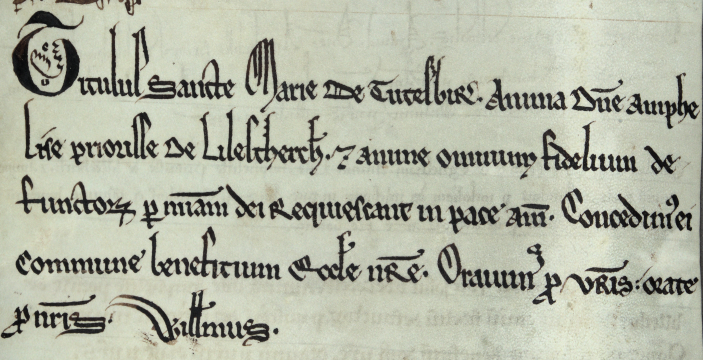 Titulus Sancte Marie De Tutesbir̃. Anima Dñe Amphe
liśe priorisse De Lilescherch. ⁊ anime omnium fidelium de
functorꝝ ꝑ miãm dei Requiescant in pace am̃. Concedimꝰ ei
commune beneficium Eccłe nr̃e. Orauimꝰ ꝓ vr̃is: orate
ꝓ nr̃is Willmus.